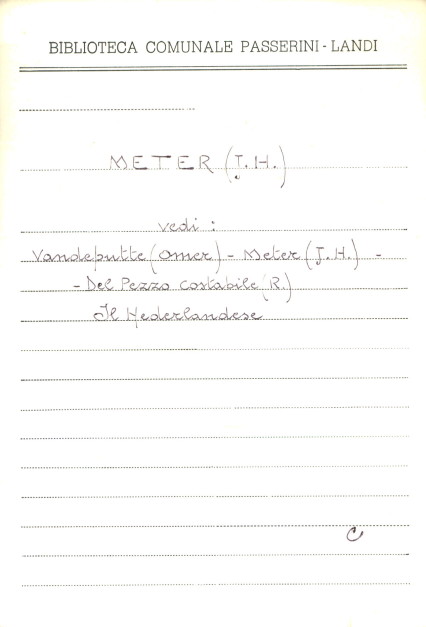 BIBLIOTECA COMUNALE PASSERINI-LANDI
METER (J.H.)
vedi :
Vandeputte (Omer) - Meter (J.H.) -
- Del Pezzo Costabile (R.)
Il Nederlandese
C